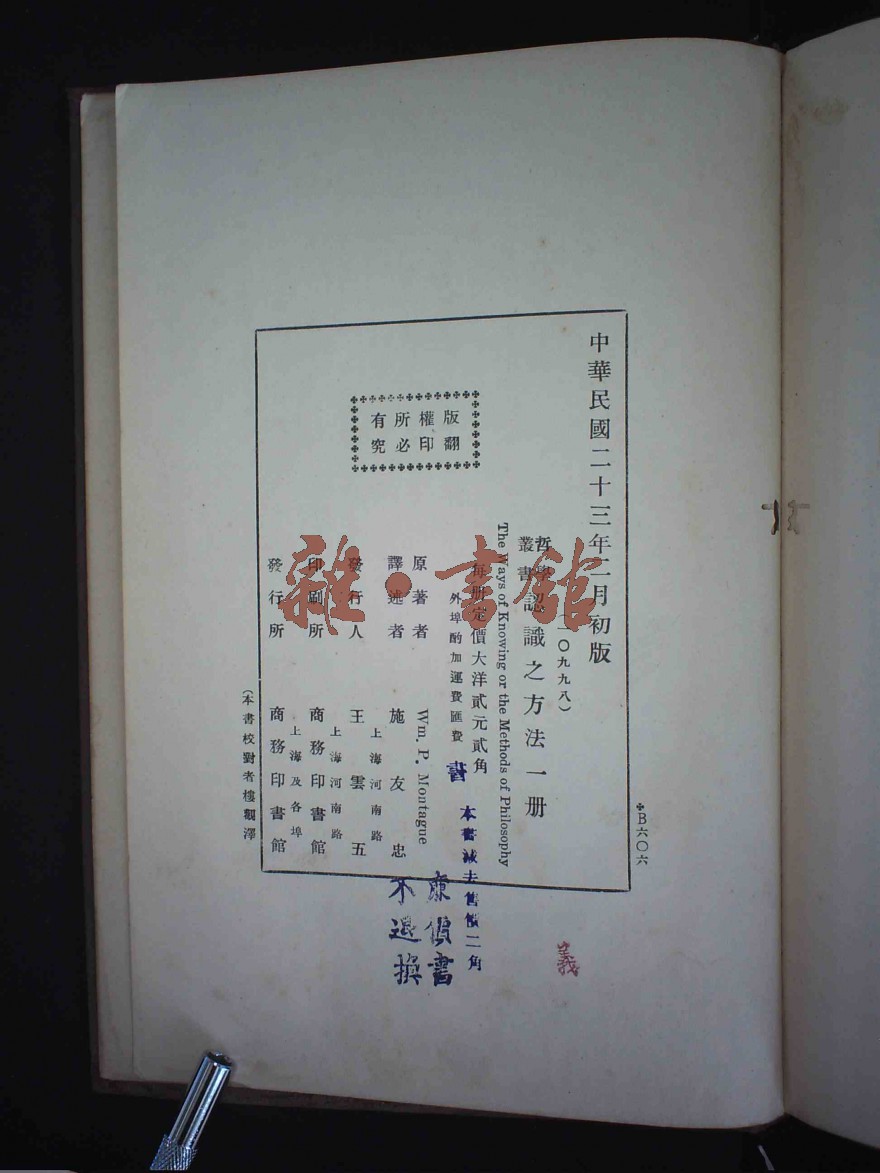 中華民國二十三年二月初版
(二〇九九八)
哲學
叢書
認識之方法一册
The Ways of Knowing or the Methods of Philosophy
每册定價大洋貳元貳角
外埠酌加運費匯費
原著者 Wm. P. Montague
譯述者 施友忠
上海河南路
發行人 王雲五
上海河南路
印刷所 商務印書館
上海及各埠
發行所 商務印書館
版權所有
翻印必究
(本書校對者樓澤)
B六〇六
本書減去售價二角
廉價書
不退換
義
雜·書館